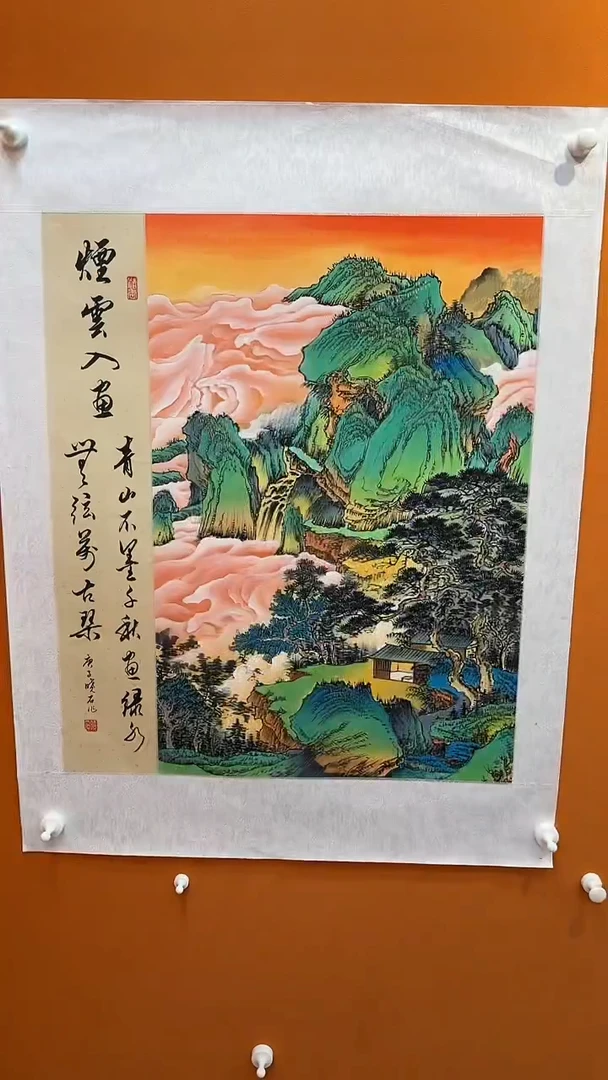 煙雲入畫
青山不墨千秋畫綠水
無弦萬古琴
庚子曉石作